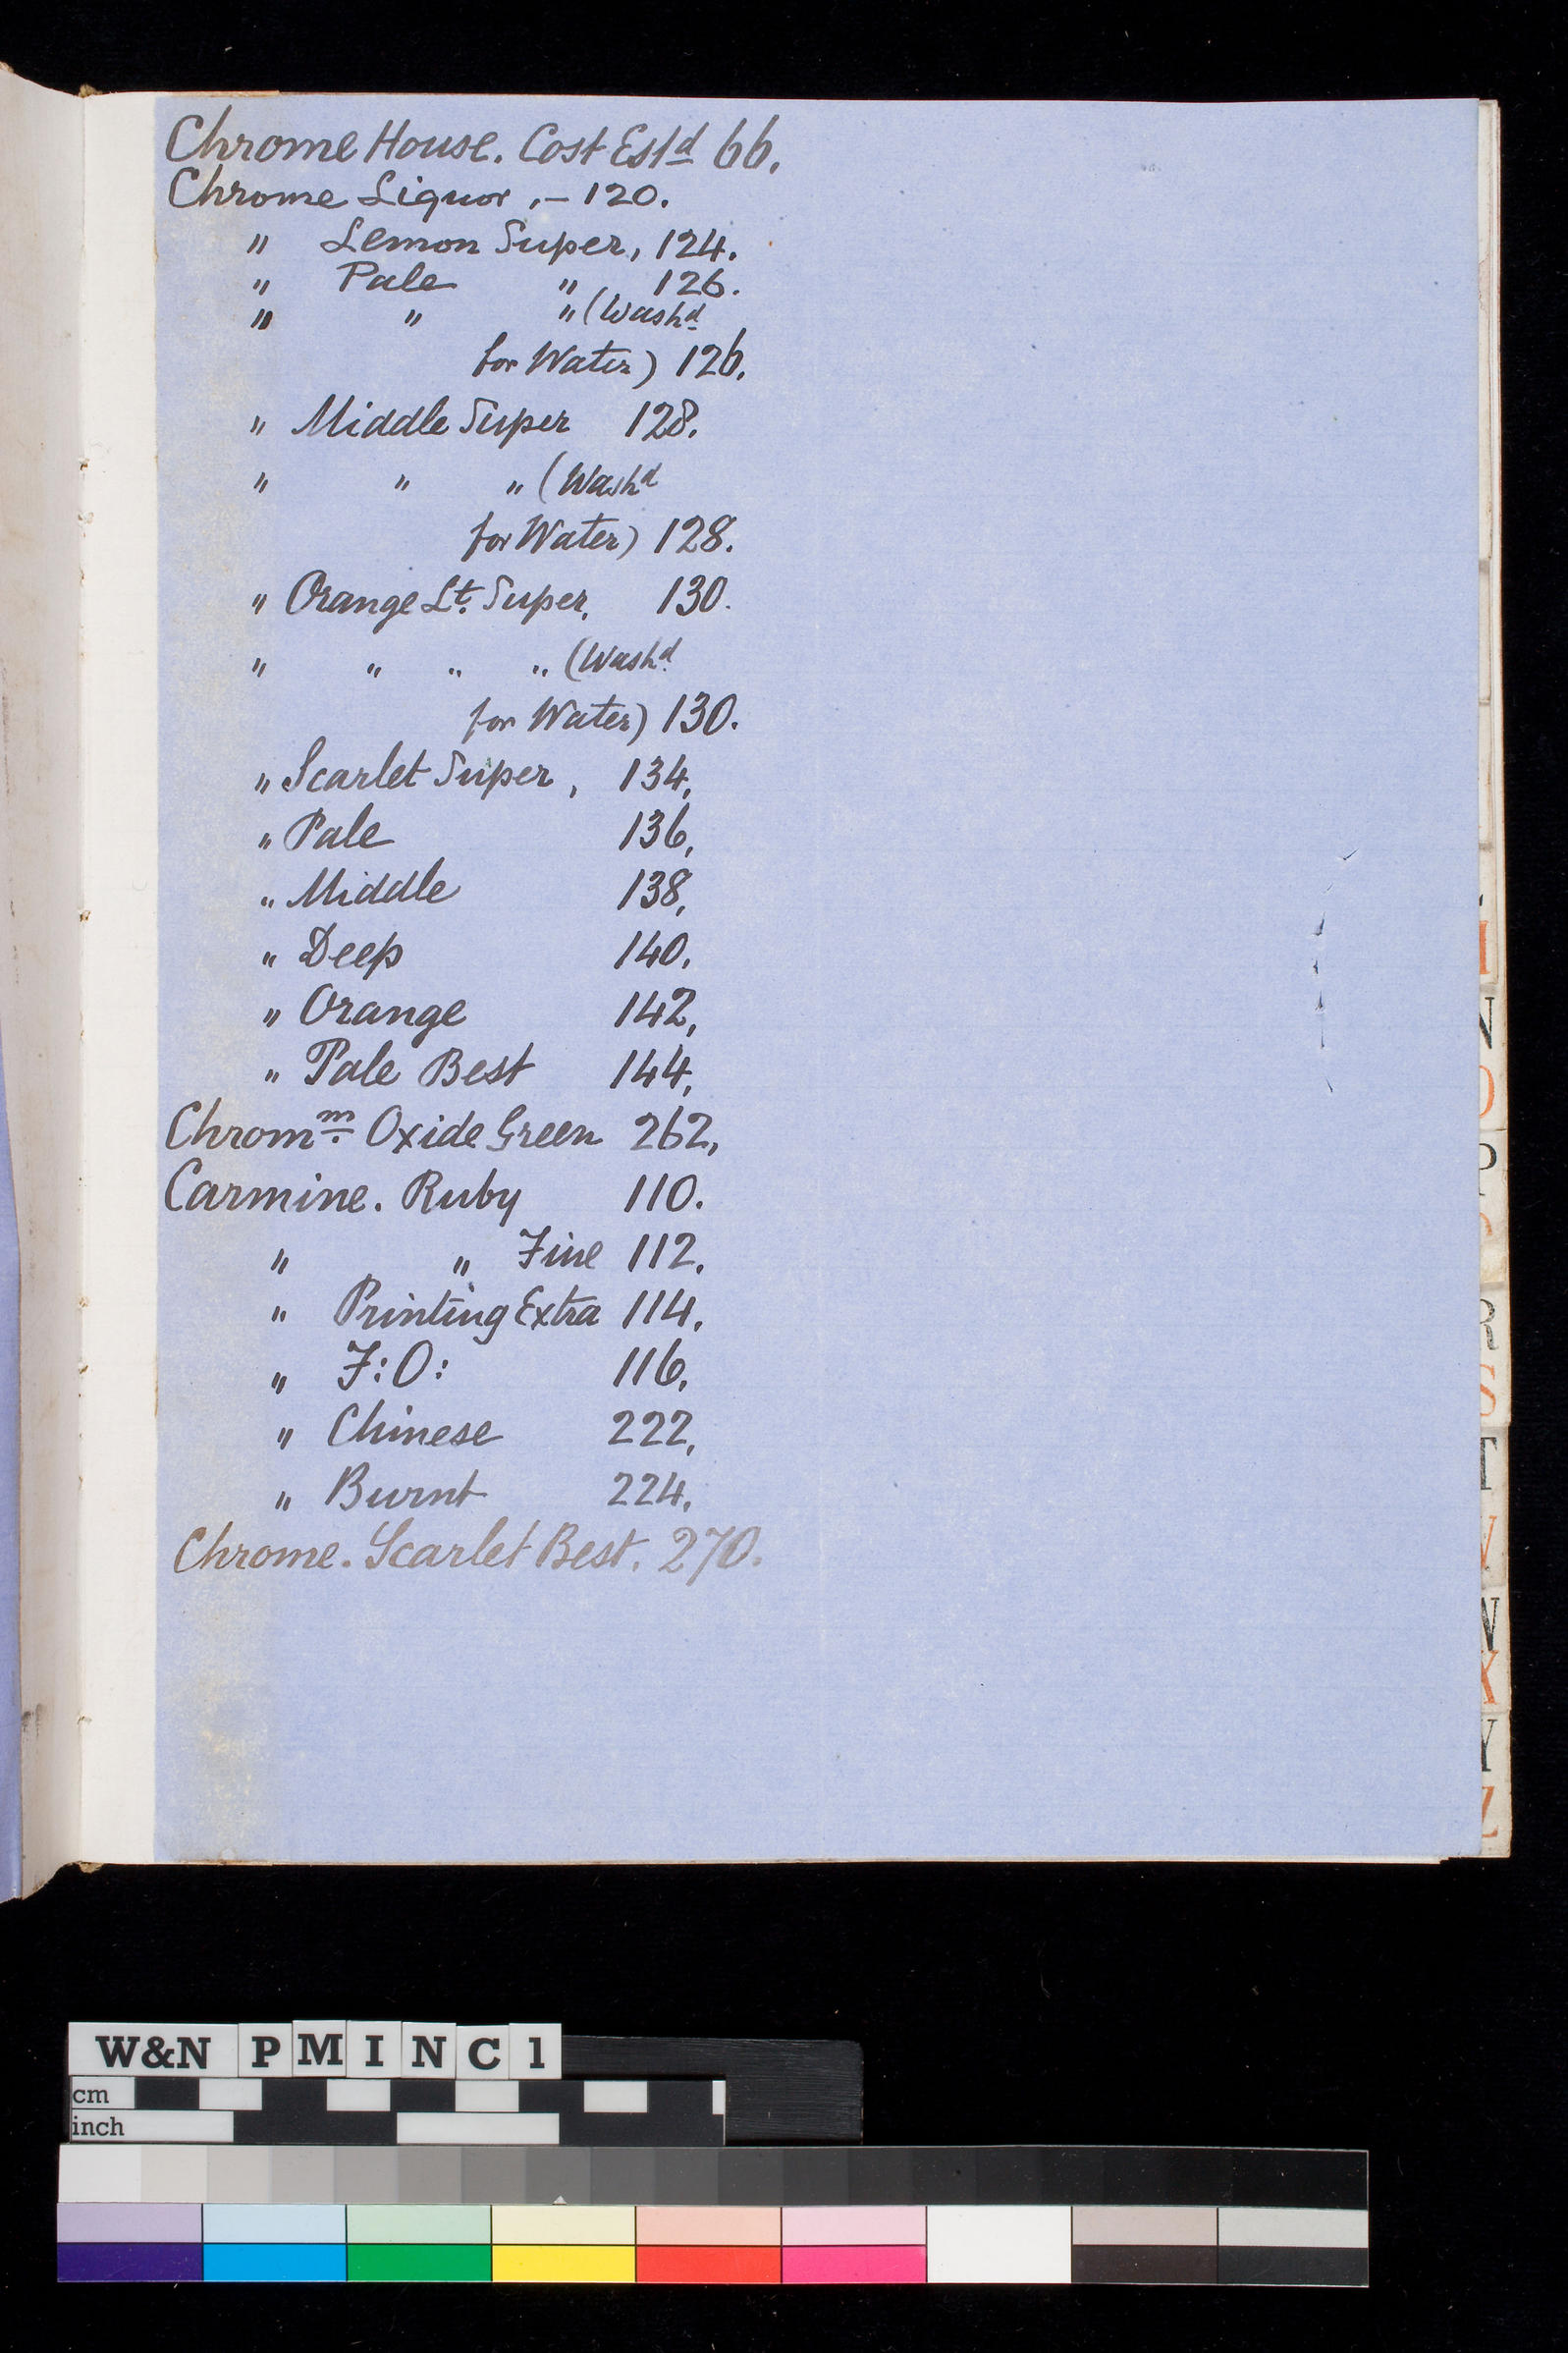 Chrome House. Cost Estd 66.
Chrome Liquor, – 120.
" Lemon Super, 124.
" Pale " 126.
" " " (Washd
for Water) 126.
" Middle Super 128.
" " " (Washd
for Water) 128.
" Orange Lt. Super, 130.
" " " " (Washd
for Water) 130.
" Scarlet Super, 134,
" Pale 136,
" Middle 138,
" Deep 140.
" Orange 142,
" Pale Best 144,
Chromm. Oxide Green 262,
Carmine. Ruby 110.
" " Fine 112.
" Printing Extra 114.
" F:O: 116,
" Chinese 222,
" Burnt 224.
Chrome. Scarlet Best. 270.
N
O
P
R
S
T
V
W
X
Y
Z
W&N PMINC1
cm
inch